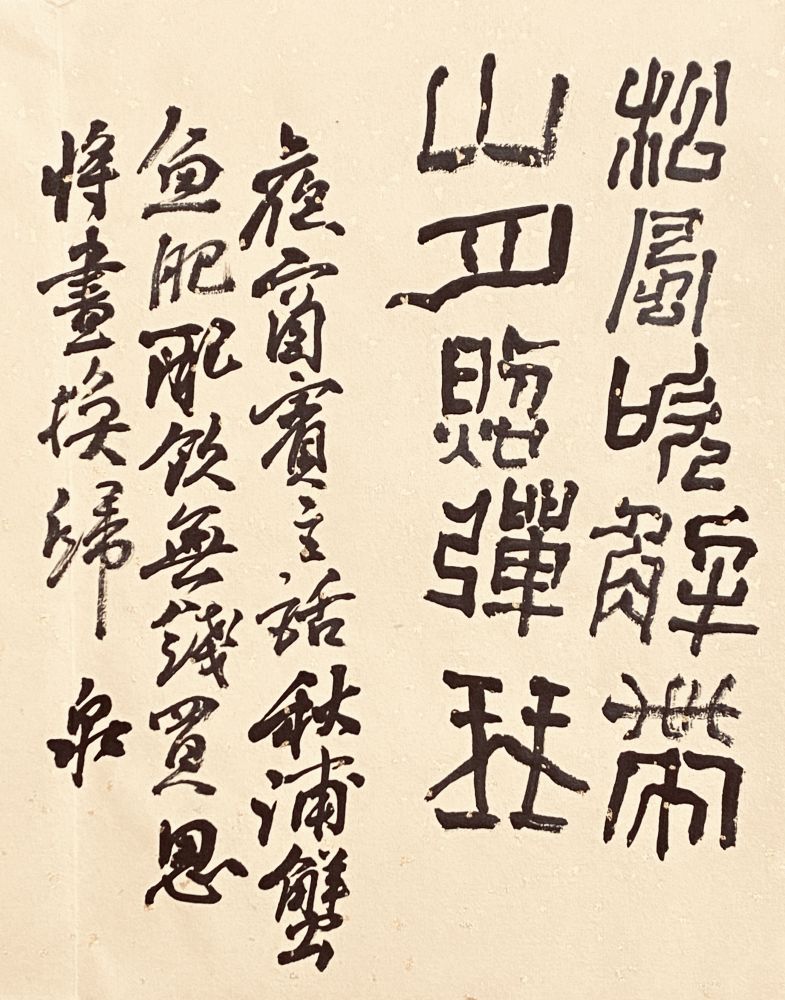 松風吹解帶
山月照彈琴
夜窗賓主話秋浦蟹
魚肥配飲無錢買思
將畫換歸 泉